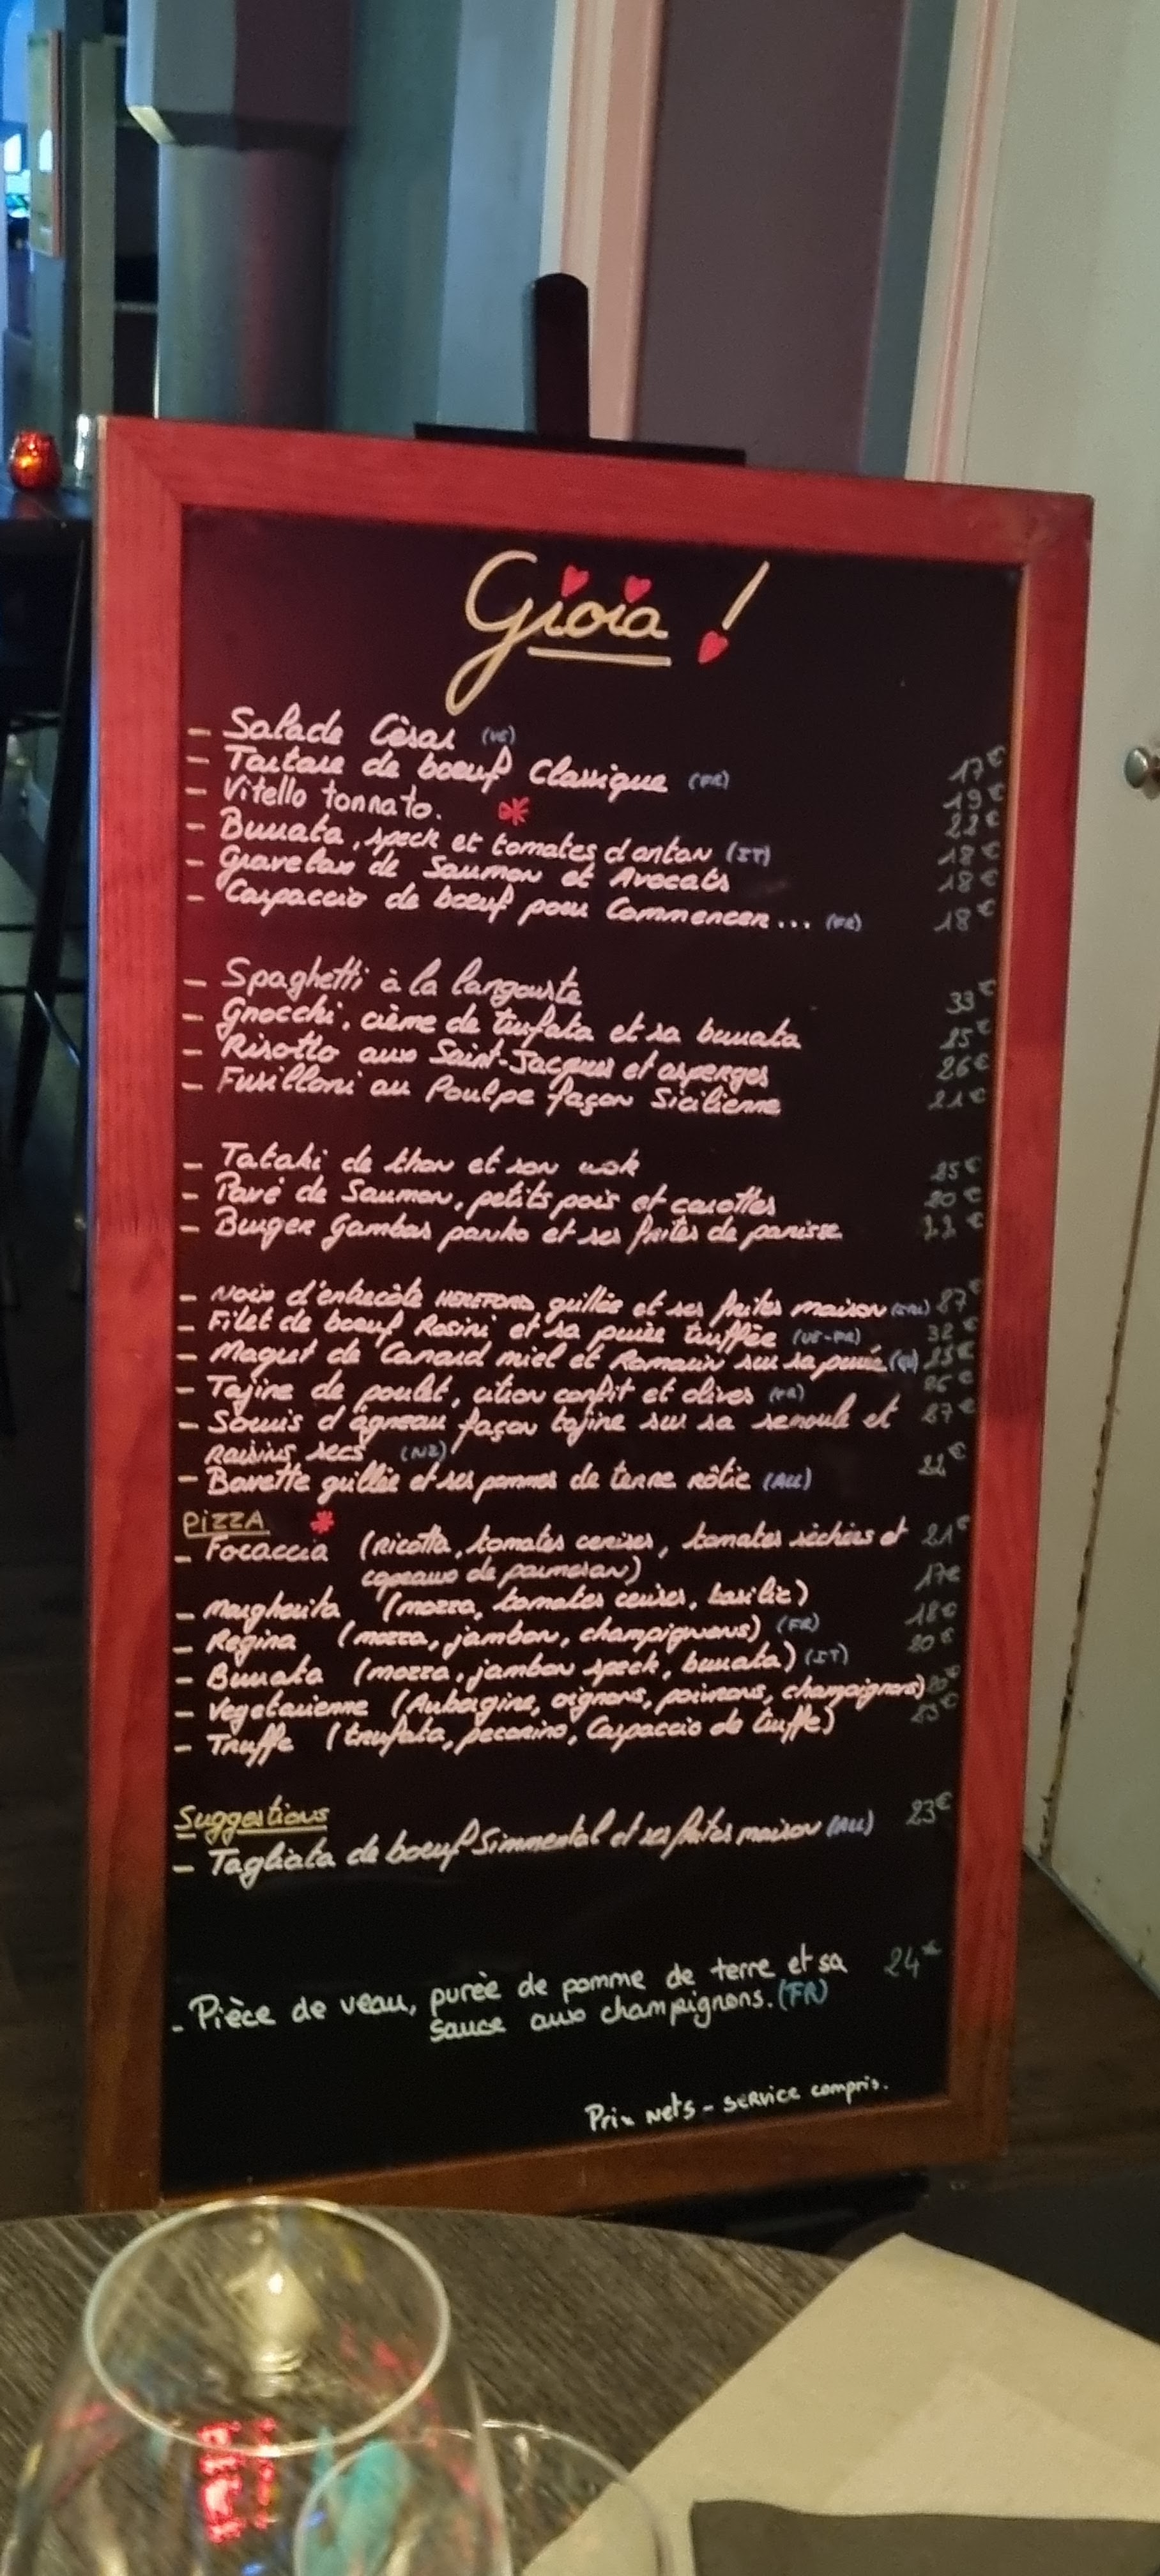 Gioia !
- Salade Cèsar (UE) 17€
- Tartare de boeuf Classique (FR) 19€
- Vitello tonnato. * 22€
- Burrata, speck et tomates d'antan (IT) 18€
- Gravelax de Saumon et Avocats 18€
- Carpaccio de boeuf pour Commencer... (FR) 18€
- Spaghetti à la langouste 33€
- Gnocchi, crème de trufata et sa burrata 25€
- Risotto aux Saint-Jacques et asperges 26€
- Fusilloni au Poulpe façon Sicilienne 21€
- Tataki de thon et son wok 25€
- Pavé de Saumon, petits pois et carottes 20€
- Burger Gambas panko et ses frites de panisse €
- Noix d'entrecôte HEREFORD, grillée et ses frites maison 27€
- Filet de boeuf Rosini et sa purée truffée (UE-FR) 32€
- Magret de Canard miel et Romarin sur sa purée 25€
- Tajine de poulet, citron confit et olives (FR) 26€
- Souris d'agneau façon tajine sur sa semoule et 27€
raisins secs (NZ)
- Bavette grillée et ses pommes de terre rôtie (ALL) 22€
PIZZA *
- Focaccia (ricotta, tomates cerises, tomates séchées et 21€
copeaux de parmesan)
- Margherita (mozza, tomates cerises, basilic) 17€
- Regina (mozza, jambon, champignons) (FR) 18€
- Burrata (mozza, jambon speck, burrata) (IT) 20€
- Vegetarienne (Aubergine, oignons, poivrons, champignons) 20€
- Truffe (trufata, pecorino, Carpaccio de truffe) 23€
Suggestions
- Tagliata de boeuf Simmental et ses frites maison (ALL) 23€
- Pièce de veau, purée de pomme de terre et sa 24€
sauce aux champignons. (FR)
Prix Nets - SERVICE compris.